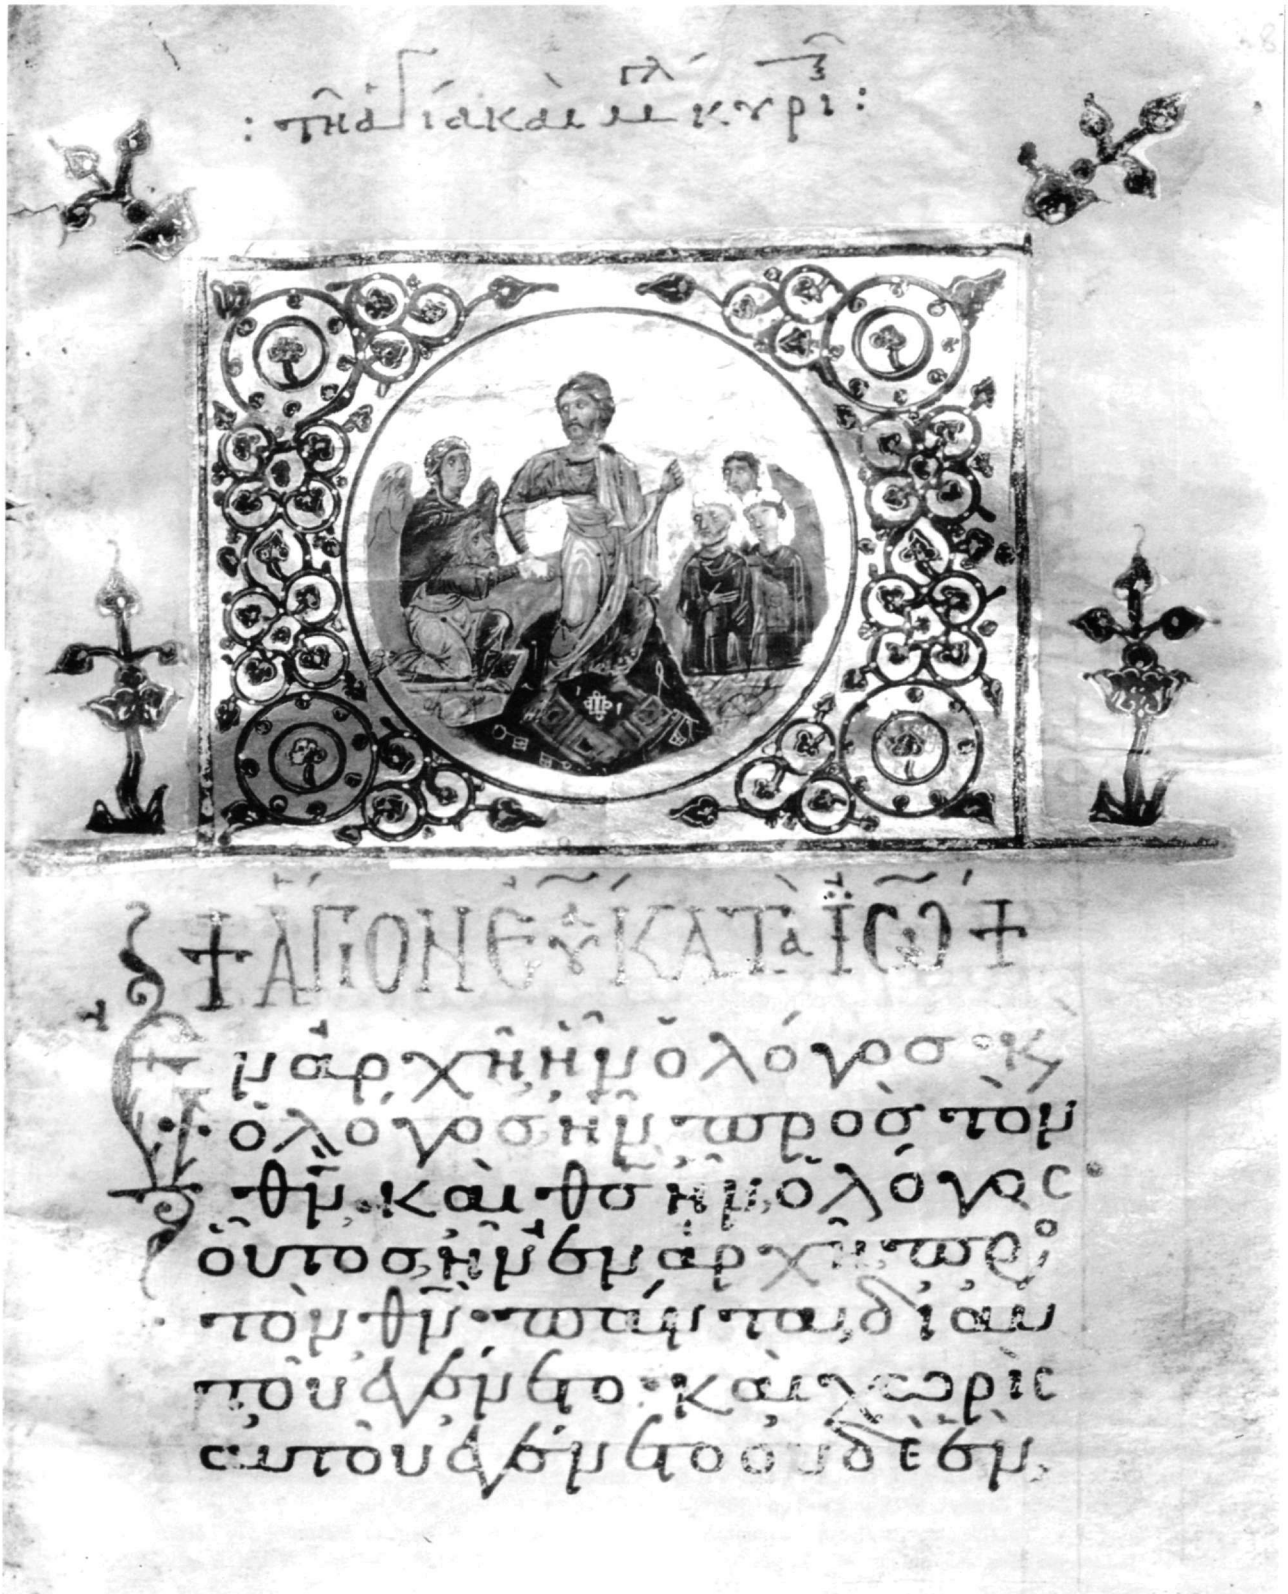 : τῆ ἁγία καὶ μ κυρι :
+ ἍΓΙΟΝ ΕΥ ΚΑΤᾺ ἸΩ +
Ἐν ἀρχῆ ἦν ὁ λόγος· κ
ὁ λόγος ἦν πρὸς τὸν
θν̅· καὶ θς̅ ἦν ὁ λόγος·
οὗτος ἦν ἐν ἀρχῆ πρ
τὸν θν̅· πάντα δι αυ
τοῦ ἐγένετο· καὶ χωρὶς
αὐτοῦ ἐγένετο οὐδὲ ἕν,